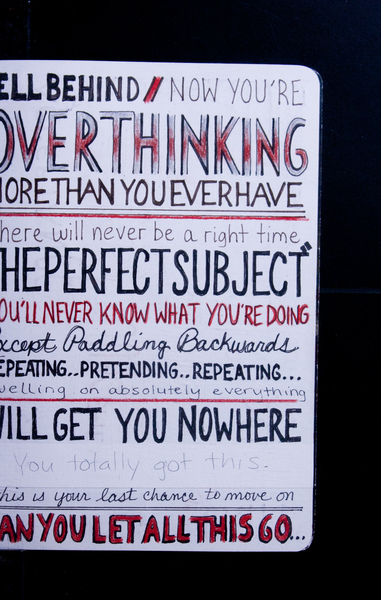 ELL BEHIND // NOW YOU'RE
OVERTHINKING
MORE THAN YOU EVER HAVE
here will never be a right time
HE PERFECT SUBJECT"
OU'LL NEVER KNOW WHAT YOU'RE DOING
xcept Paddling Backwards
EPEATING..PRETENDING..REPEATING...
welling on absolutely everything
WILL GET YOU NOWHERE
You totally got this.
this is your last chance to move on
AN YOU LET ALL THIS GO...